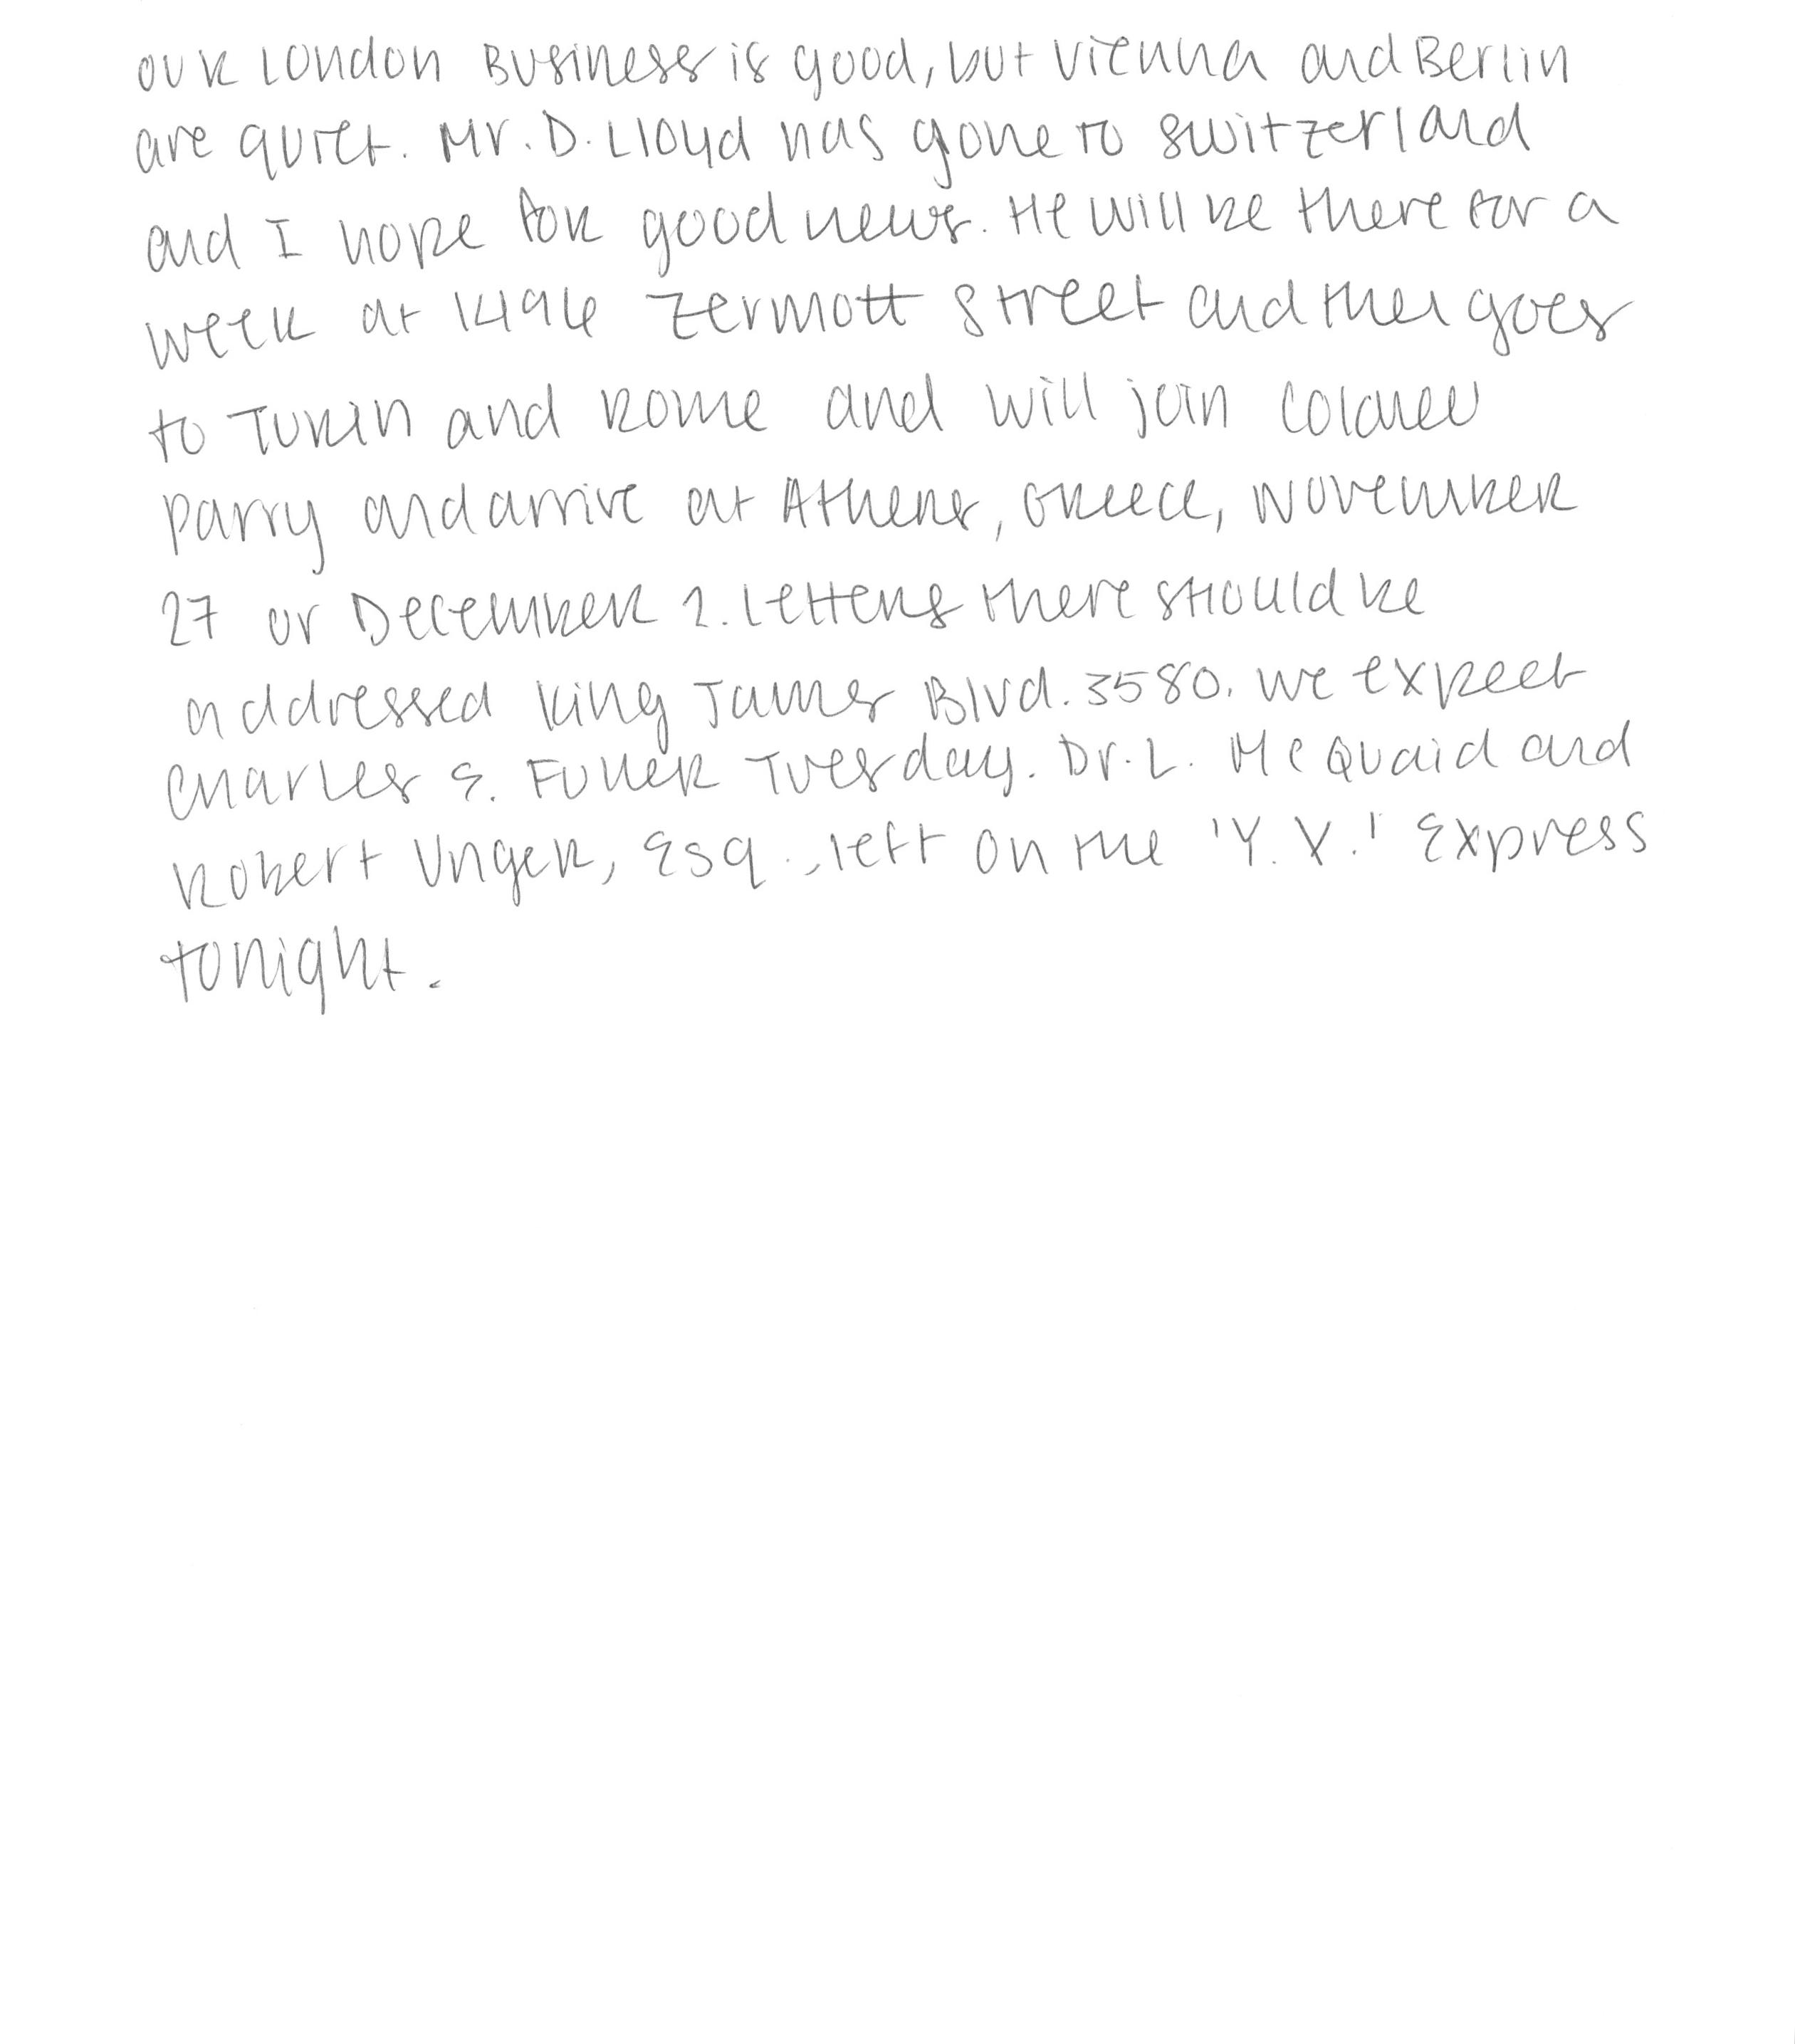 our London Business is good, but Vienna and Berlin
are quiet. Mr. D. Lloyd has gone to Switzerland
and I hope for good news. He will be there for a
week at 1496 Zermott Street and then goes
to Turin and Rome and will join Colonel
Parry and arrive at Athens, Greece, November
27 or December 2. Letters there should be
addressed King James Blvd. 3580. We expect
Charles E. Fuller Tuesday. Dr. L. McQuaid and
Robert Unger, Esq., left on the 'Y. X.' Express
tonight.